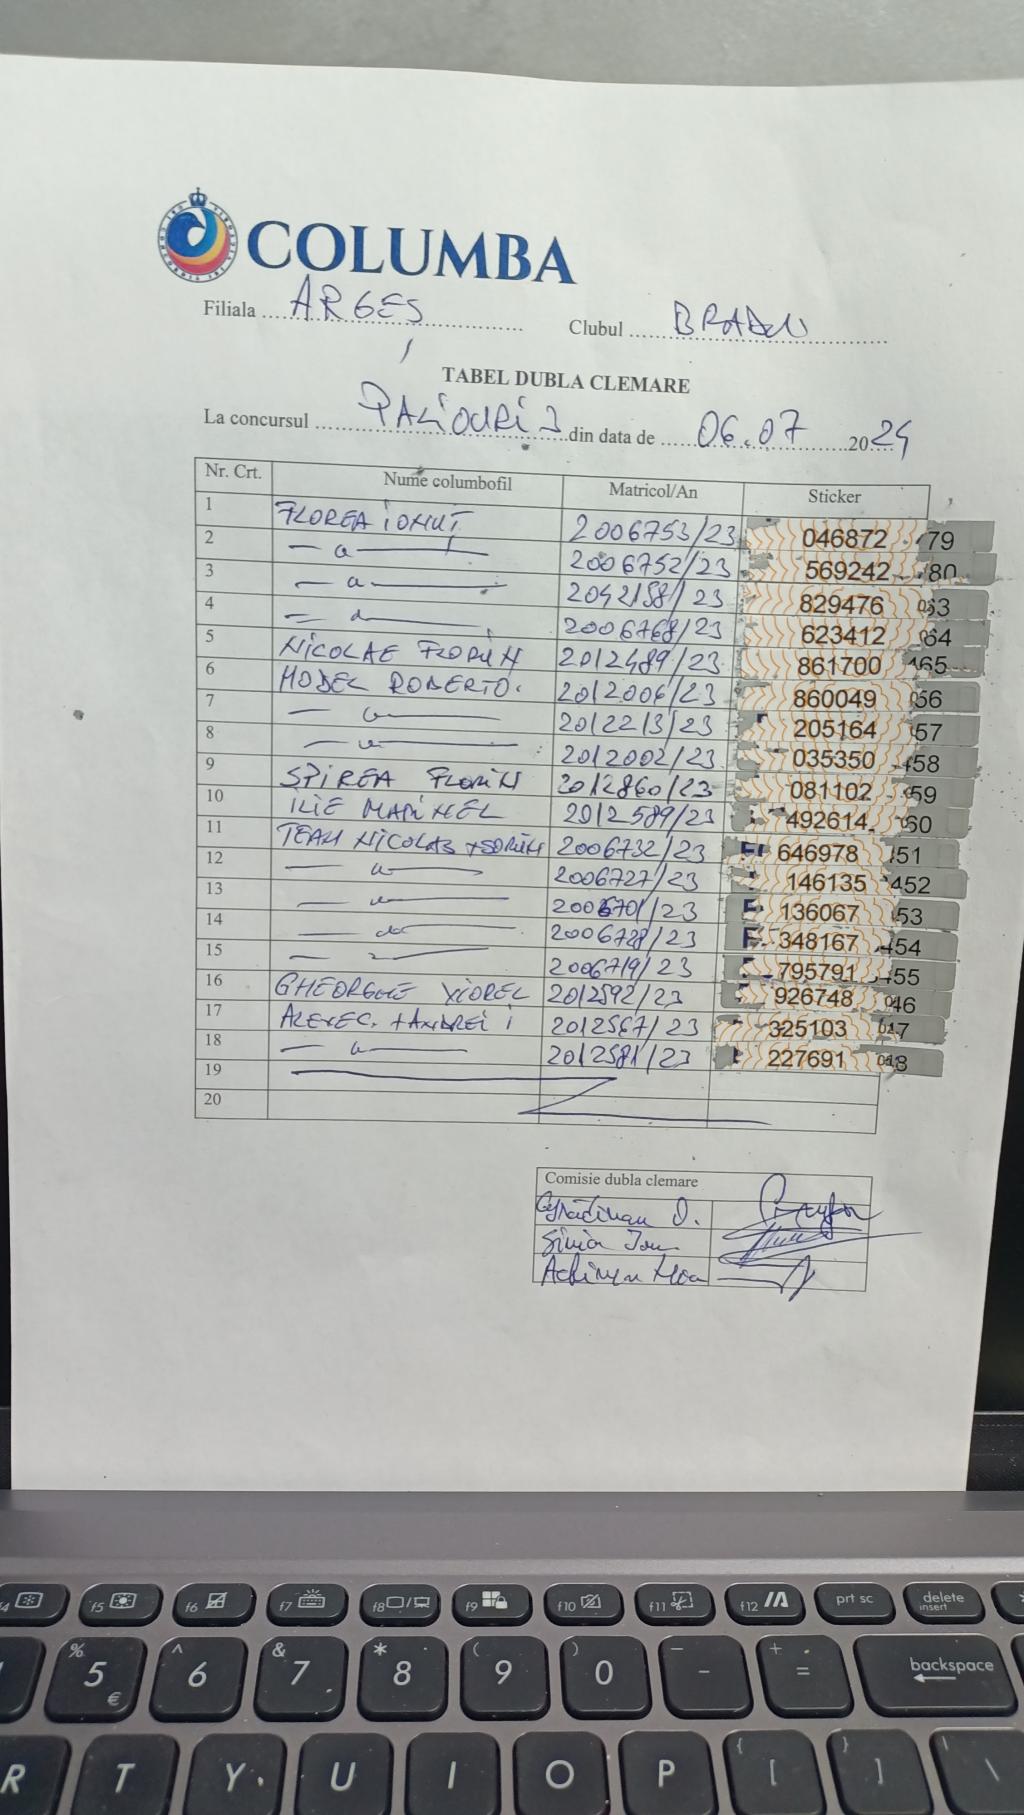 COLUMBA
Filiala ARGEȘ Clubul BRADU
TABEL DUBLA CLEMARE
La concursul PALIOURI 3 din data de 06.07 2024
Nr. Crt. Nume columbofil Matricol/An Sticker
1 FLOREA IONUȚ 2006753/23 046872 79
2 — a — 2006752/23 569242 80
3 — a — 2042158/23 829476 063
4 — a — 2006768/23 623412 064
5 NICOLAE FLORIN 2012489/23 861700 465
6 MODEL ROBERTO. 2012006/23 860049 056
7 — a — 2012213/23 205164 057
8 — a — 2012002/23 035350 458
9 SPIREA FLORIN 2012860/23 081102 59
10 ILIE MARINEL 2012589/23 492614 60
11 TEAM NICOLAE +SORIN 2006732/23 646978 451
12 — a — 2006727/23 146135 452
13 — a — 2006701/23 136067 53
14 — a — 2006728/23 348167 454
15 — — 2006719/23 795791 455
16 GHEORGHE VIOREL 2012592/23 926748 046
17 ALEXEC. +ANDREI I 2012567/23 325103 047
18 — a — 2012581/23 227691 048
19
20
Comisie dubla clemare
Grădinau D.
Sima Ion
Adrian
f5 f6 f7 f8 f9 f10 f11 f12 prt sc delete
insert
% 5 € ^ 6 & 7 * 8 ( 9 ) 0 _ - + = backspace
R T Y U I O P { [ } ] | \